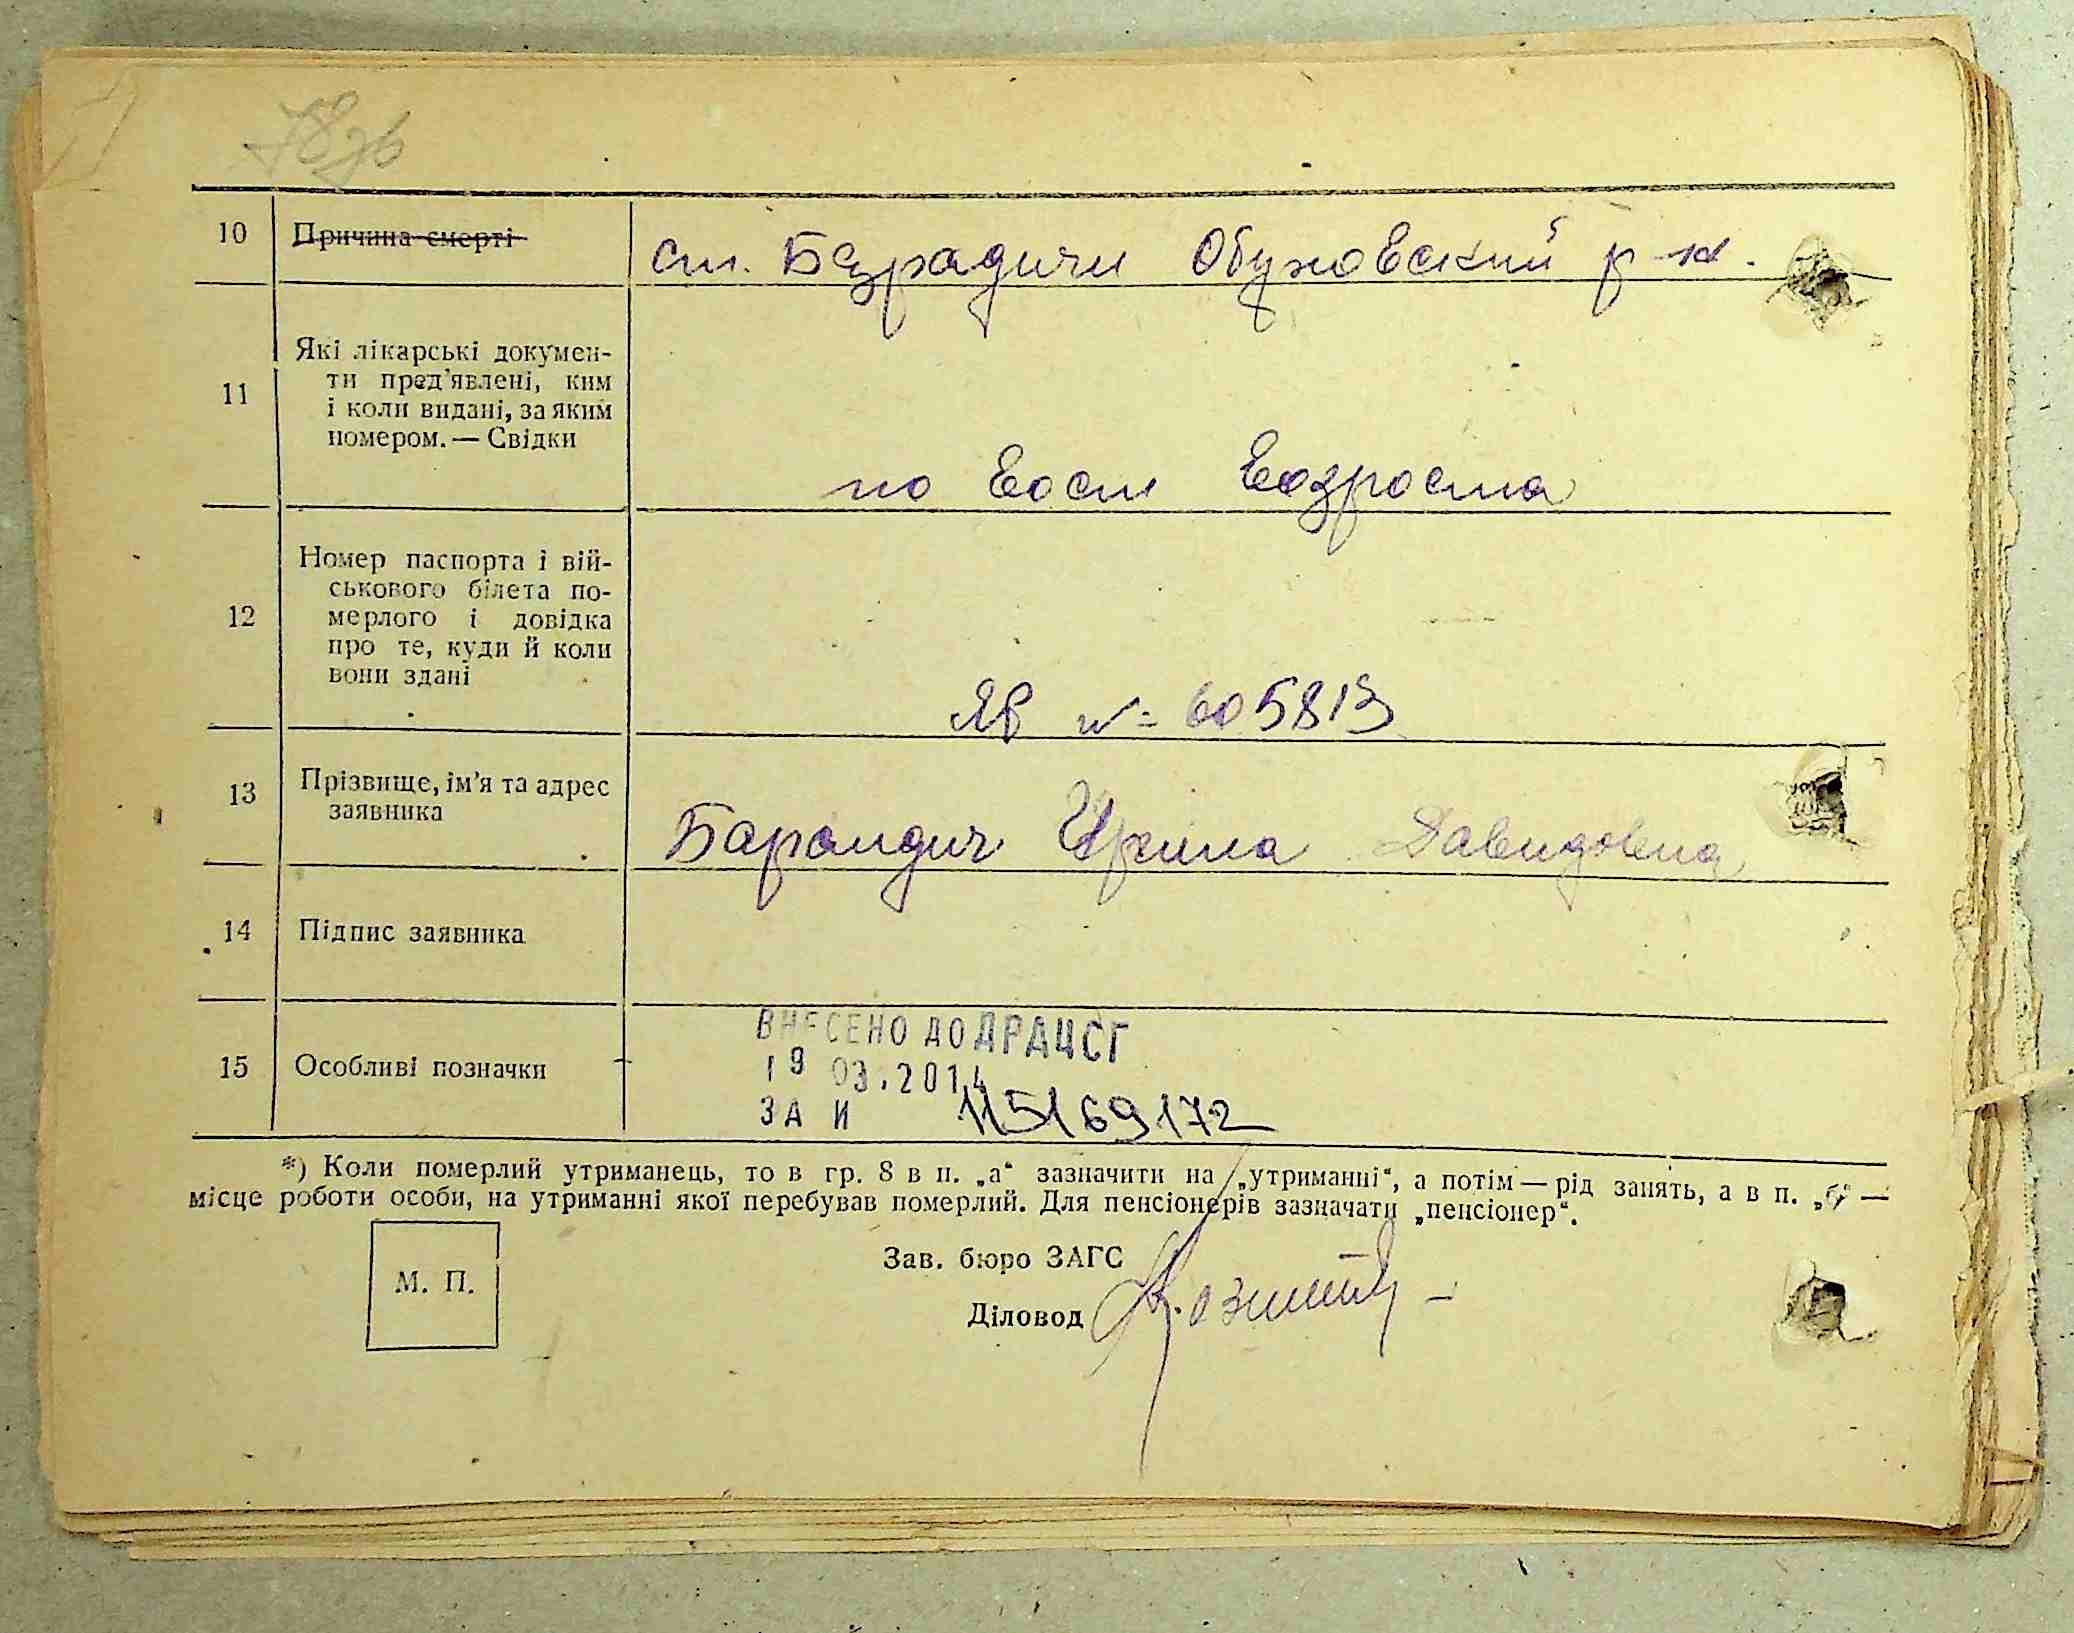 78зв
10 Причина смерті ст. Безрадичи Обуховский р-н.
11 Які лікарські докумен-
ти пред'явлені, ким
і коли видані, за яким
номером. — Свідки
по вост возроста
12 Номер паспорта і вій-
ськового білета по-
мерлого і довідка
про те, куди й коли
вони здані
ЯВ № 605813
13 Прізвище, ім'я та адрес
заявника
Барандич Ирина Давидовна
14 Підпис заявника
ВНЕСЕНО ДО ДРАЦСГ
15 Особливі позначки 19 03.2014
ЗА И 115169172
*) Коли померлий утриманець, то в гр. 8 в п. „а“ зазначити на „утриманні“, а потім — рід занять, а в п. „б“ —
місце роботи особи, на утриманні якої перебував померлий. Для пенсіонерів зазначати „пенсіонер“.
М. П.
Зав. бюро ЗАГС
Діловод